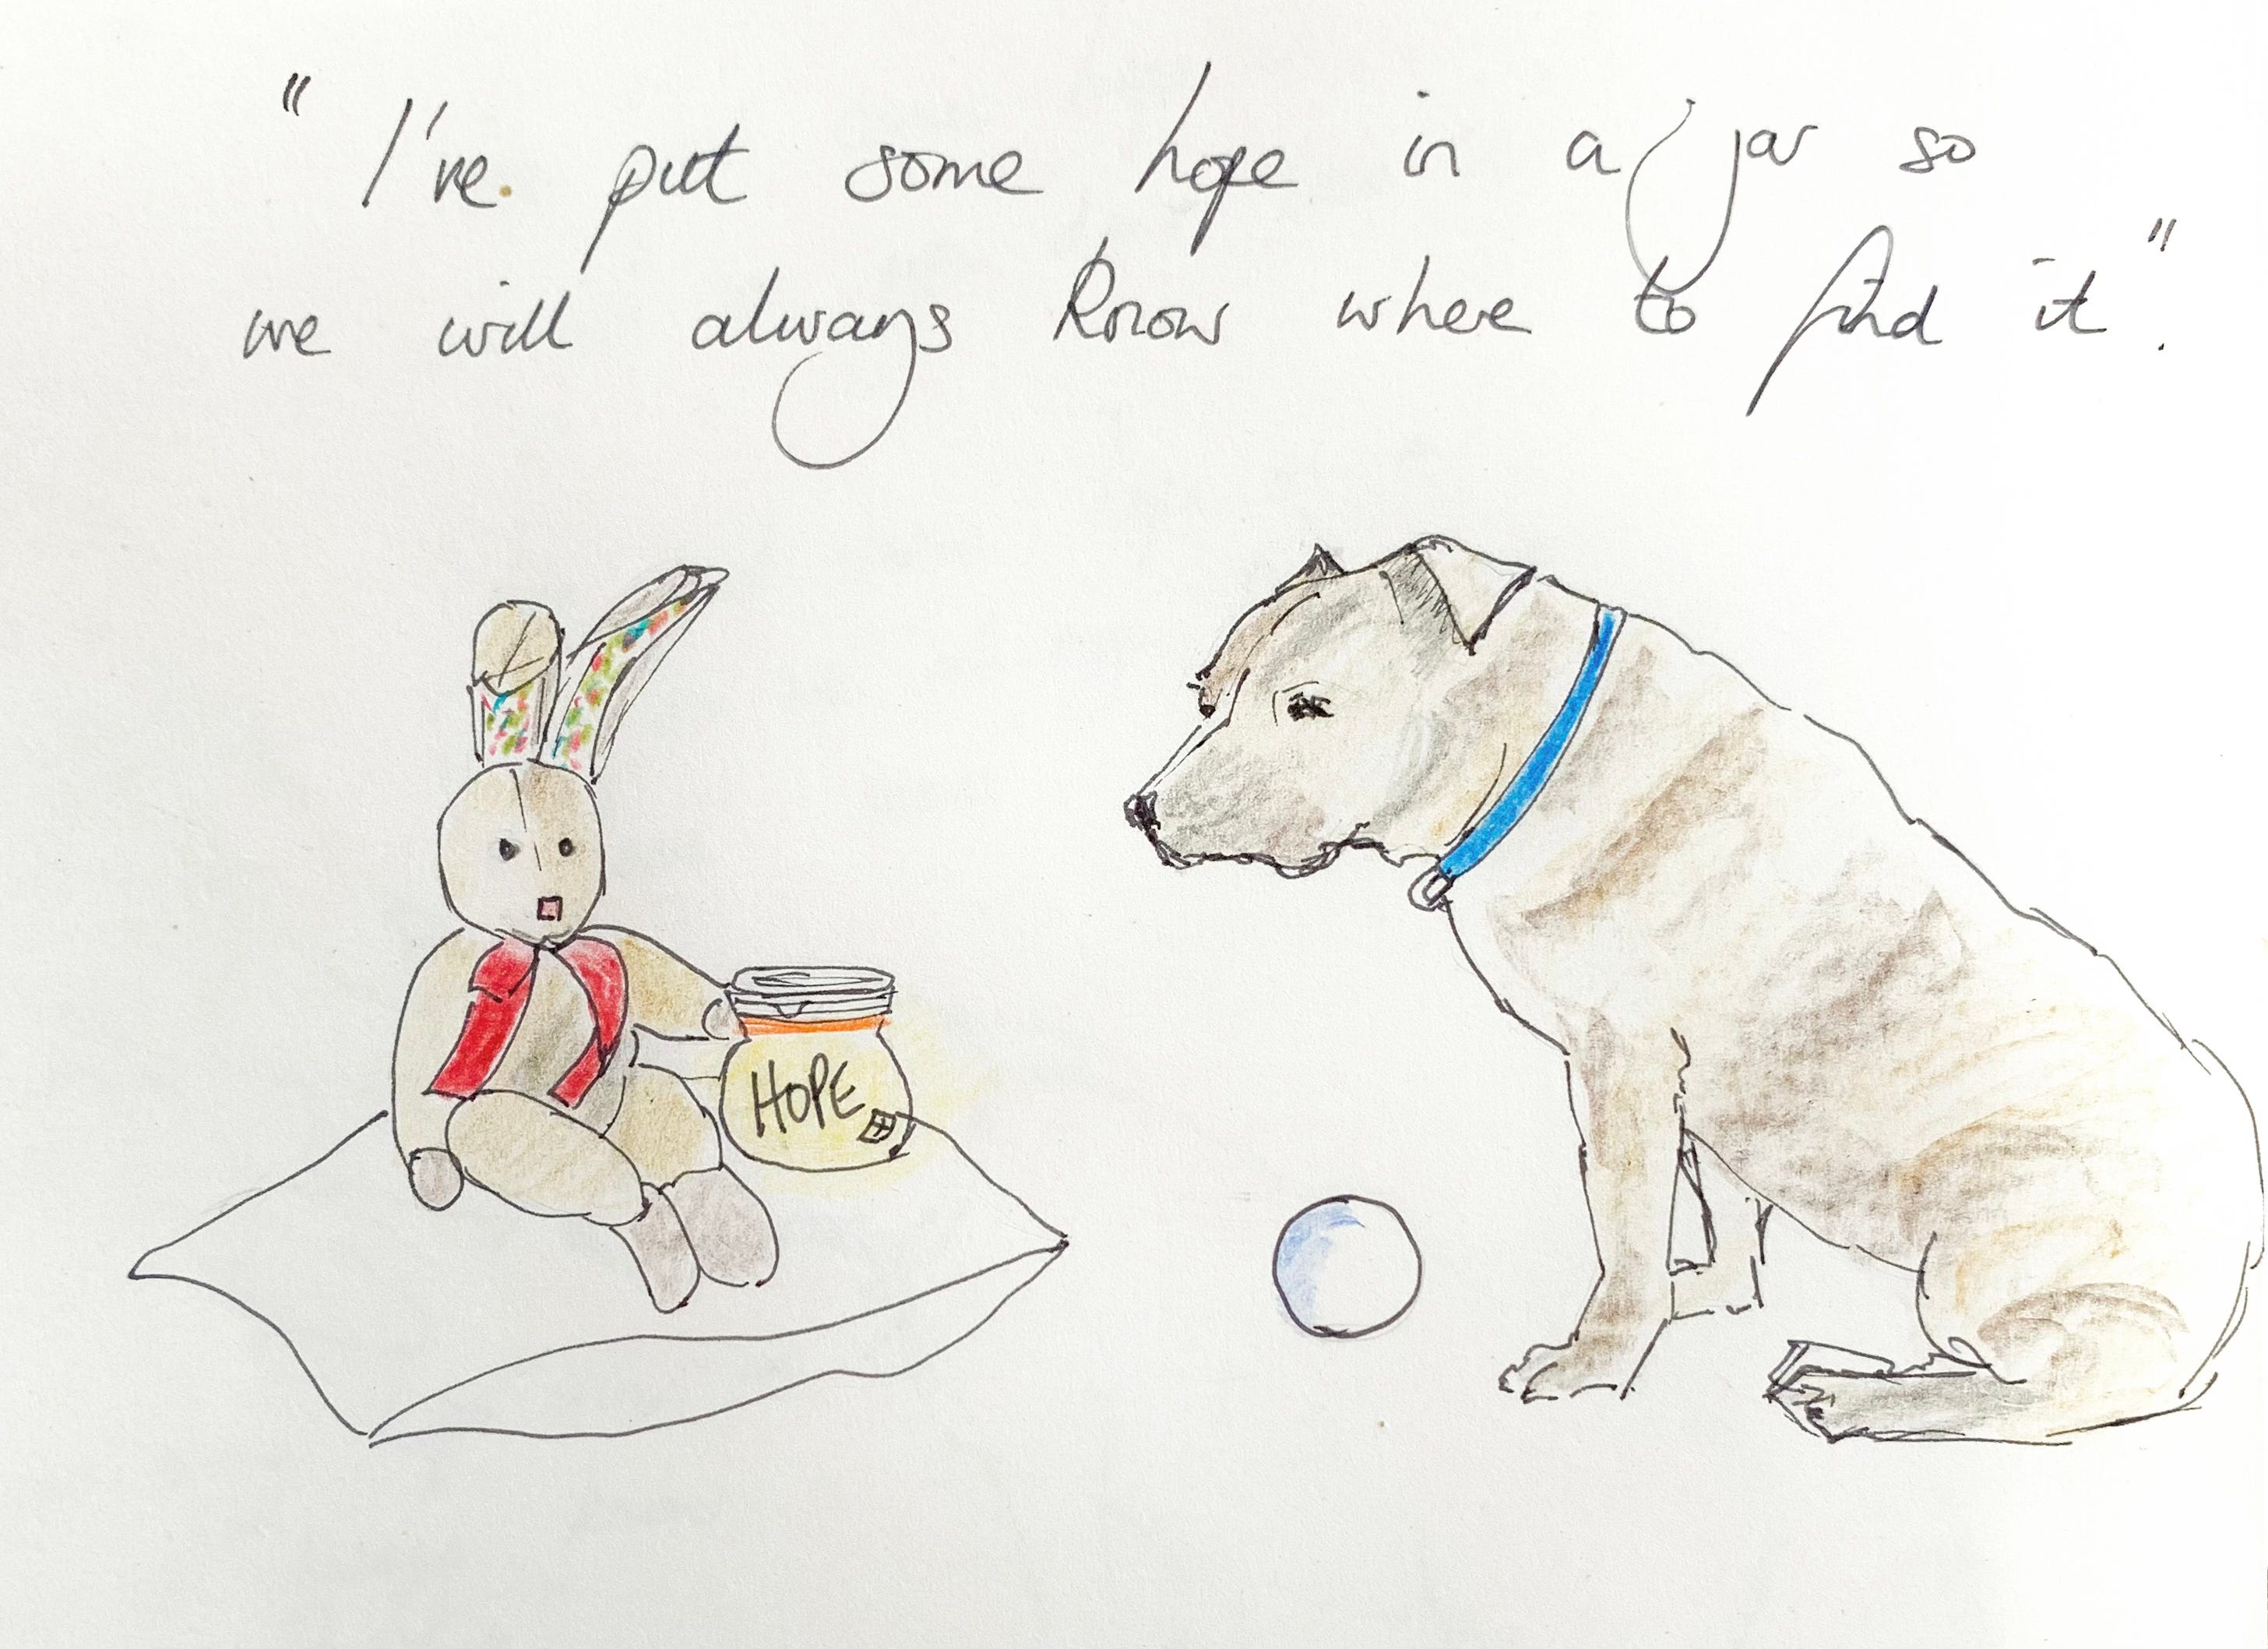 "I've put some hope in a jar so
we will always know where to find it".
HOPE